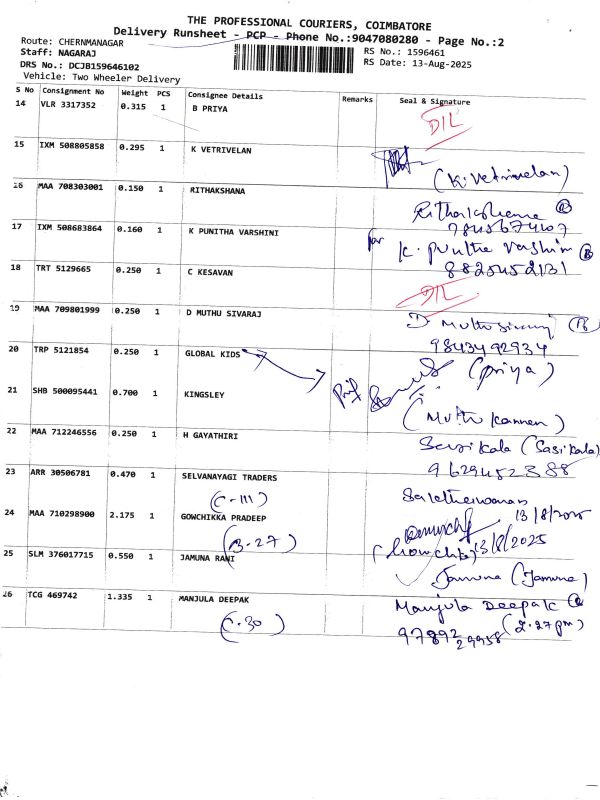 THE PROFESSIONAL COURIERS, COIMBATORE
Delivery Runsheet - PCP - Phone No.:9047080280 - Page No.:2
Route: CHERNMANAGAR
RS No.: 1596461
Staff: NAGARAJ
RS Date: 13-Aug-2025
DRS No.: DCJB159646102
Vehicle: Two Wheeler Delivery
S No Consignment No Weight PCS Consignee Details Remarks Seal & Signature
14 VLR 3317352 0.315 1 B PRIYA
DIL
15 IXM 508805858 0.295 1 K VETRIVELAN
(K.Vetrivelan)
16 MAA 708303001 0.150 1 RITHAKSHANA
17 IXM 508683864 0.160 1 K PUNITHA VARSHINI
for K. Punitha Varshini
8825452131
18 TRT 5129665 0.250 1 C KESAVAN
DIL
19 MAA 709801999 0.250 1 D MUTHU SIVARAJ
D Muthu Sivaraj
9843492934
20 TRP 5121854 0.250 1 GLOBAL KIDS
(Priya)
21 SHB 500095441 0.700 1 KINGSLEY
(Muthu Kannan)
22 MAA 712246556 0.250 1 H GAYATHIRI
Sasikala (Sasikala)
9629452388
23 ARR 30506781 0.470 1 SELVANAYAGI TRADERS
(C-111)
24 MAA 710298900 2.175 1 GOWCHIKKA PRADEEP
13/8/2025
(B-27)
13/8/2025
25 SLM 376017715 0.550 1 JAMUNA RANI
Jamuna (Jamuna)
26 TCG 469742 1.335 1 MANJULA DEEPAK
Manjula Deepak
(C-30)
(2.27pm)
97892 29958